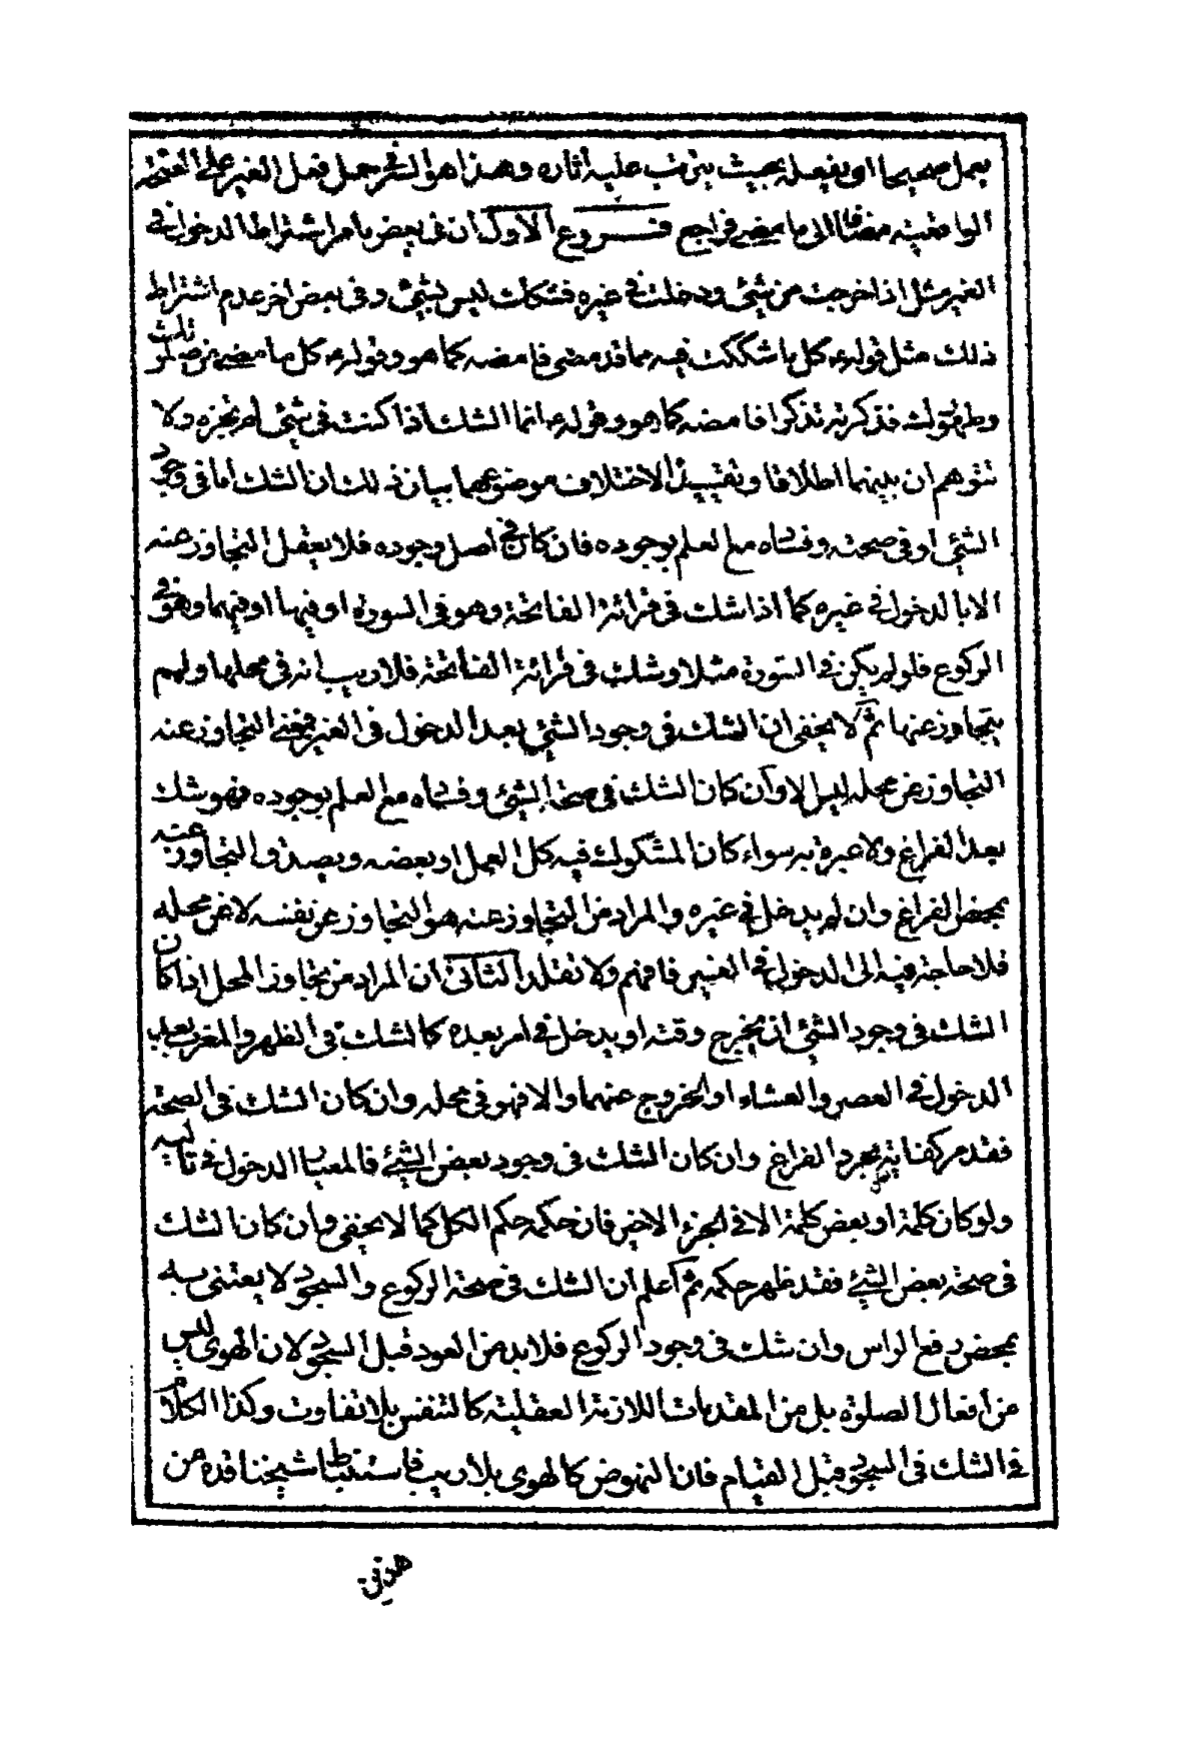 يعمل صحيحا او يفعله بحيث يترتب عليه اثاره وهذا هو السر في حمل فعل الغير على الصحة
الواقعية مضافا الى ما مضى فراجع فروع الاول ان فى بعض ما مر اشتراط الدخول فى
الغير مثل اذا خرجت من شئ ودخلت فى غيره فشكك ليس بشئ وفى بعض اخر عدم اشتراط
ذلك مثل قوله ع كل ما شككت فيه مما قد مضى فامضه كما هو وقوله ع كل ما مضى من صلوتك
وطهورك فذكرته تذكرا فامضه كما هو وقوله ع انما الشك اذا كنت فى شئ لم تجزه ولا
تتوهم ان بينهما اطلاقا وتقييدا لاختلاف موضوعهما بيان ذلك ان الشك اما فى وجود
الشئ او فى صحته وفساده مع العلم بوجوده فان كان فى اصل وجوده فلا يعقل التجاوز عنه
الا بالدخول فى غيره كما اذا شك فى قرائة الفاتحة وهو فى السورة او فيها او فيهما وهو فى
الركوع فلو لم يكن فى السورة مثلا وشك فى قرائة الفاتحة فلا ريب انه فى محلها ولم
يتجاوز عنها ثم لا يخفى ان الشك فى وجود الشئ بعد الدخول فى الغير معنى التجاوز عنه
التجاوز عن محله ليس الا وان كان الشك فى صحة الشئ وفساده مع العلم بوجوده فهو شك
بعد الفراغ ولا عبرة به سواء كان المشكوك فيه كل العمل او بعضه ويصدق التجاوز عنه
بمحض الفراغ وان لم يدخل فى غيره والمراد من التجاوز عنه هو التجاوز عن نفسه لا عن محله
فلا حاجة فيه الى الدخول فى الغير فافهم ولا تقلد الثانى ان المراد من تجاوز المحل اذا كان
الشك فى وجود الشئ ان يخرج وقته او يدخل فى امر بعده كالشك فى الظهر والمغرب بعد
الدخول فى العصر والعشاء او الخروج عنهما والا فهو فى محله وان كان الشك فى الصحة
فقد مر كفاية مجرد الفراغ وان كان الشك فى وجود بعض الشئ فالمعيار الدخول فى تاليه
ولو كان كلمة او بعض كلمة الا فى الجزء الاخير فان حكمه حكم الكل كما لا يخفى وان كان الشك
فى صحة بعض الشئ فقد ظهر حكمه ثم اعلم ان الشك فى صحة الركوع والسجود لا يعتنى به
بمحض رفع الراس وان شك فى وجود الركوع فلا بد من العود قبل السجود لان الهوى ليس
من افعال الصلوة بل من المقدمات اللازمة العقلية كالتنفس بلا تفاوت وكذا الكلام
فى الشك فى السجود قبل القيام فان النهوض كالهوى بلا ريب فاستنباط شيخنا قده من